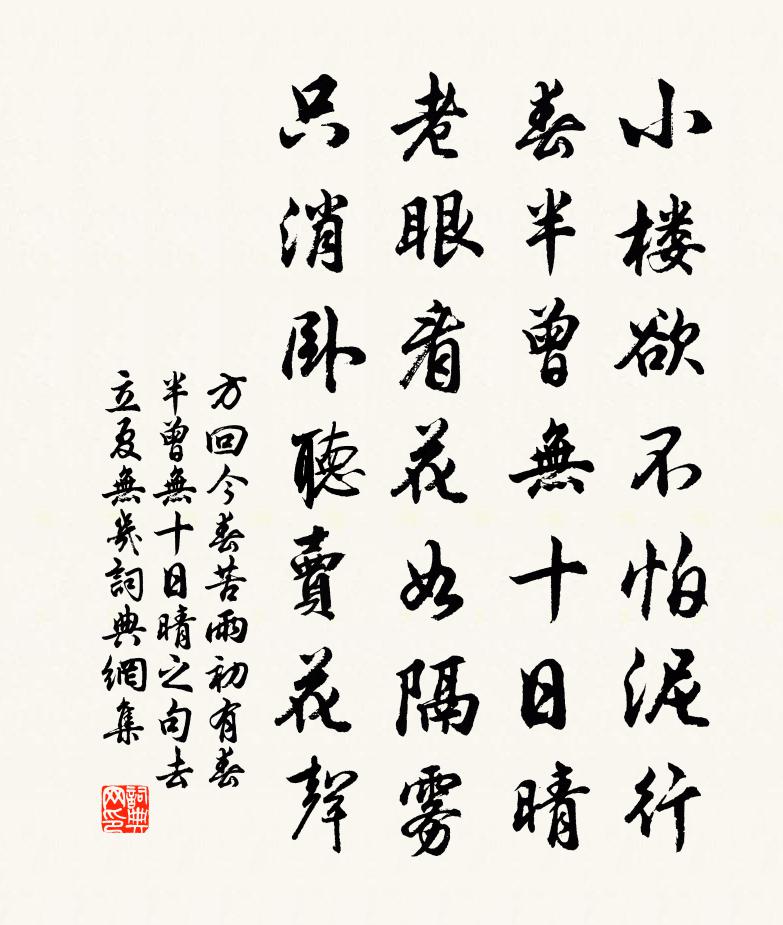 小楼欲不怕泥行
春半曾無十日晴
老眼看花如隔雾
只消卧聽賣花聲
方回今春苦雨初有春
半曾無十日晴之句去
立夏無幾詞典網集
詞典
网印